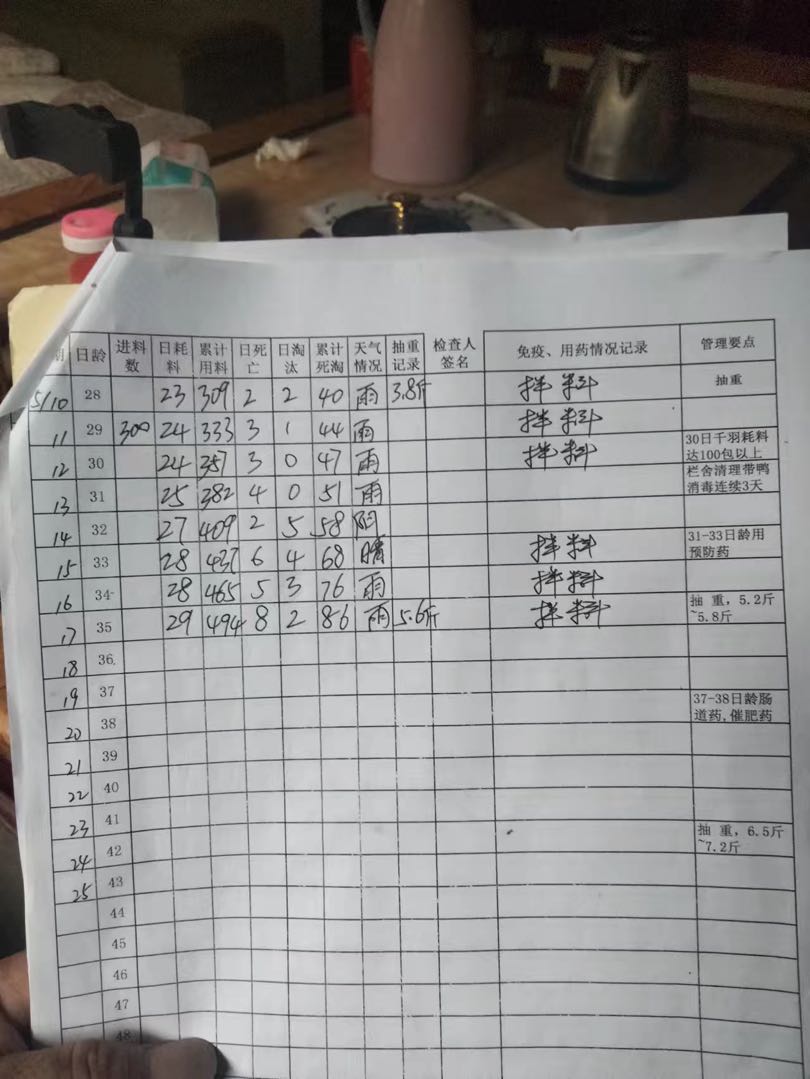 期 日龄 进料数 日耗料 累计用料 日死亡 日淘汰 累计死淘 天气情况 抽重记录 检查人签名 免疫、用药情况记录 管理要点
5/10 28 23 309 2 2 40 雨 3.8斤 拌料 抽重
11 29 300 24 333 3 1 44 雨 拌料
12 30 24 357 3 0 47 雨 拌料 30日千羽耗料达100包以上
13 31 25 382 4 0 51 雨 栏舍清理带鸭消毒连续3天
14 32 27 409 2 5 58 阴
15 33 28 437 6 4 68 晴 拌料 31-33日龄用预防药
16 34 28 465 5 3 76 雨 拌料
17 35 29 494 8 2 86 雨 5.6斤 拌料 抽重，5.2斤~5.8斤
18 36
19 37 37-38日龄肠道药,催肥药
20 38
21 39
22 40
23 41 抽重，6.5斤~7.2斤
24 42
25 43
44
45
46
47
48